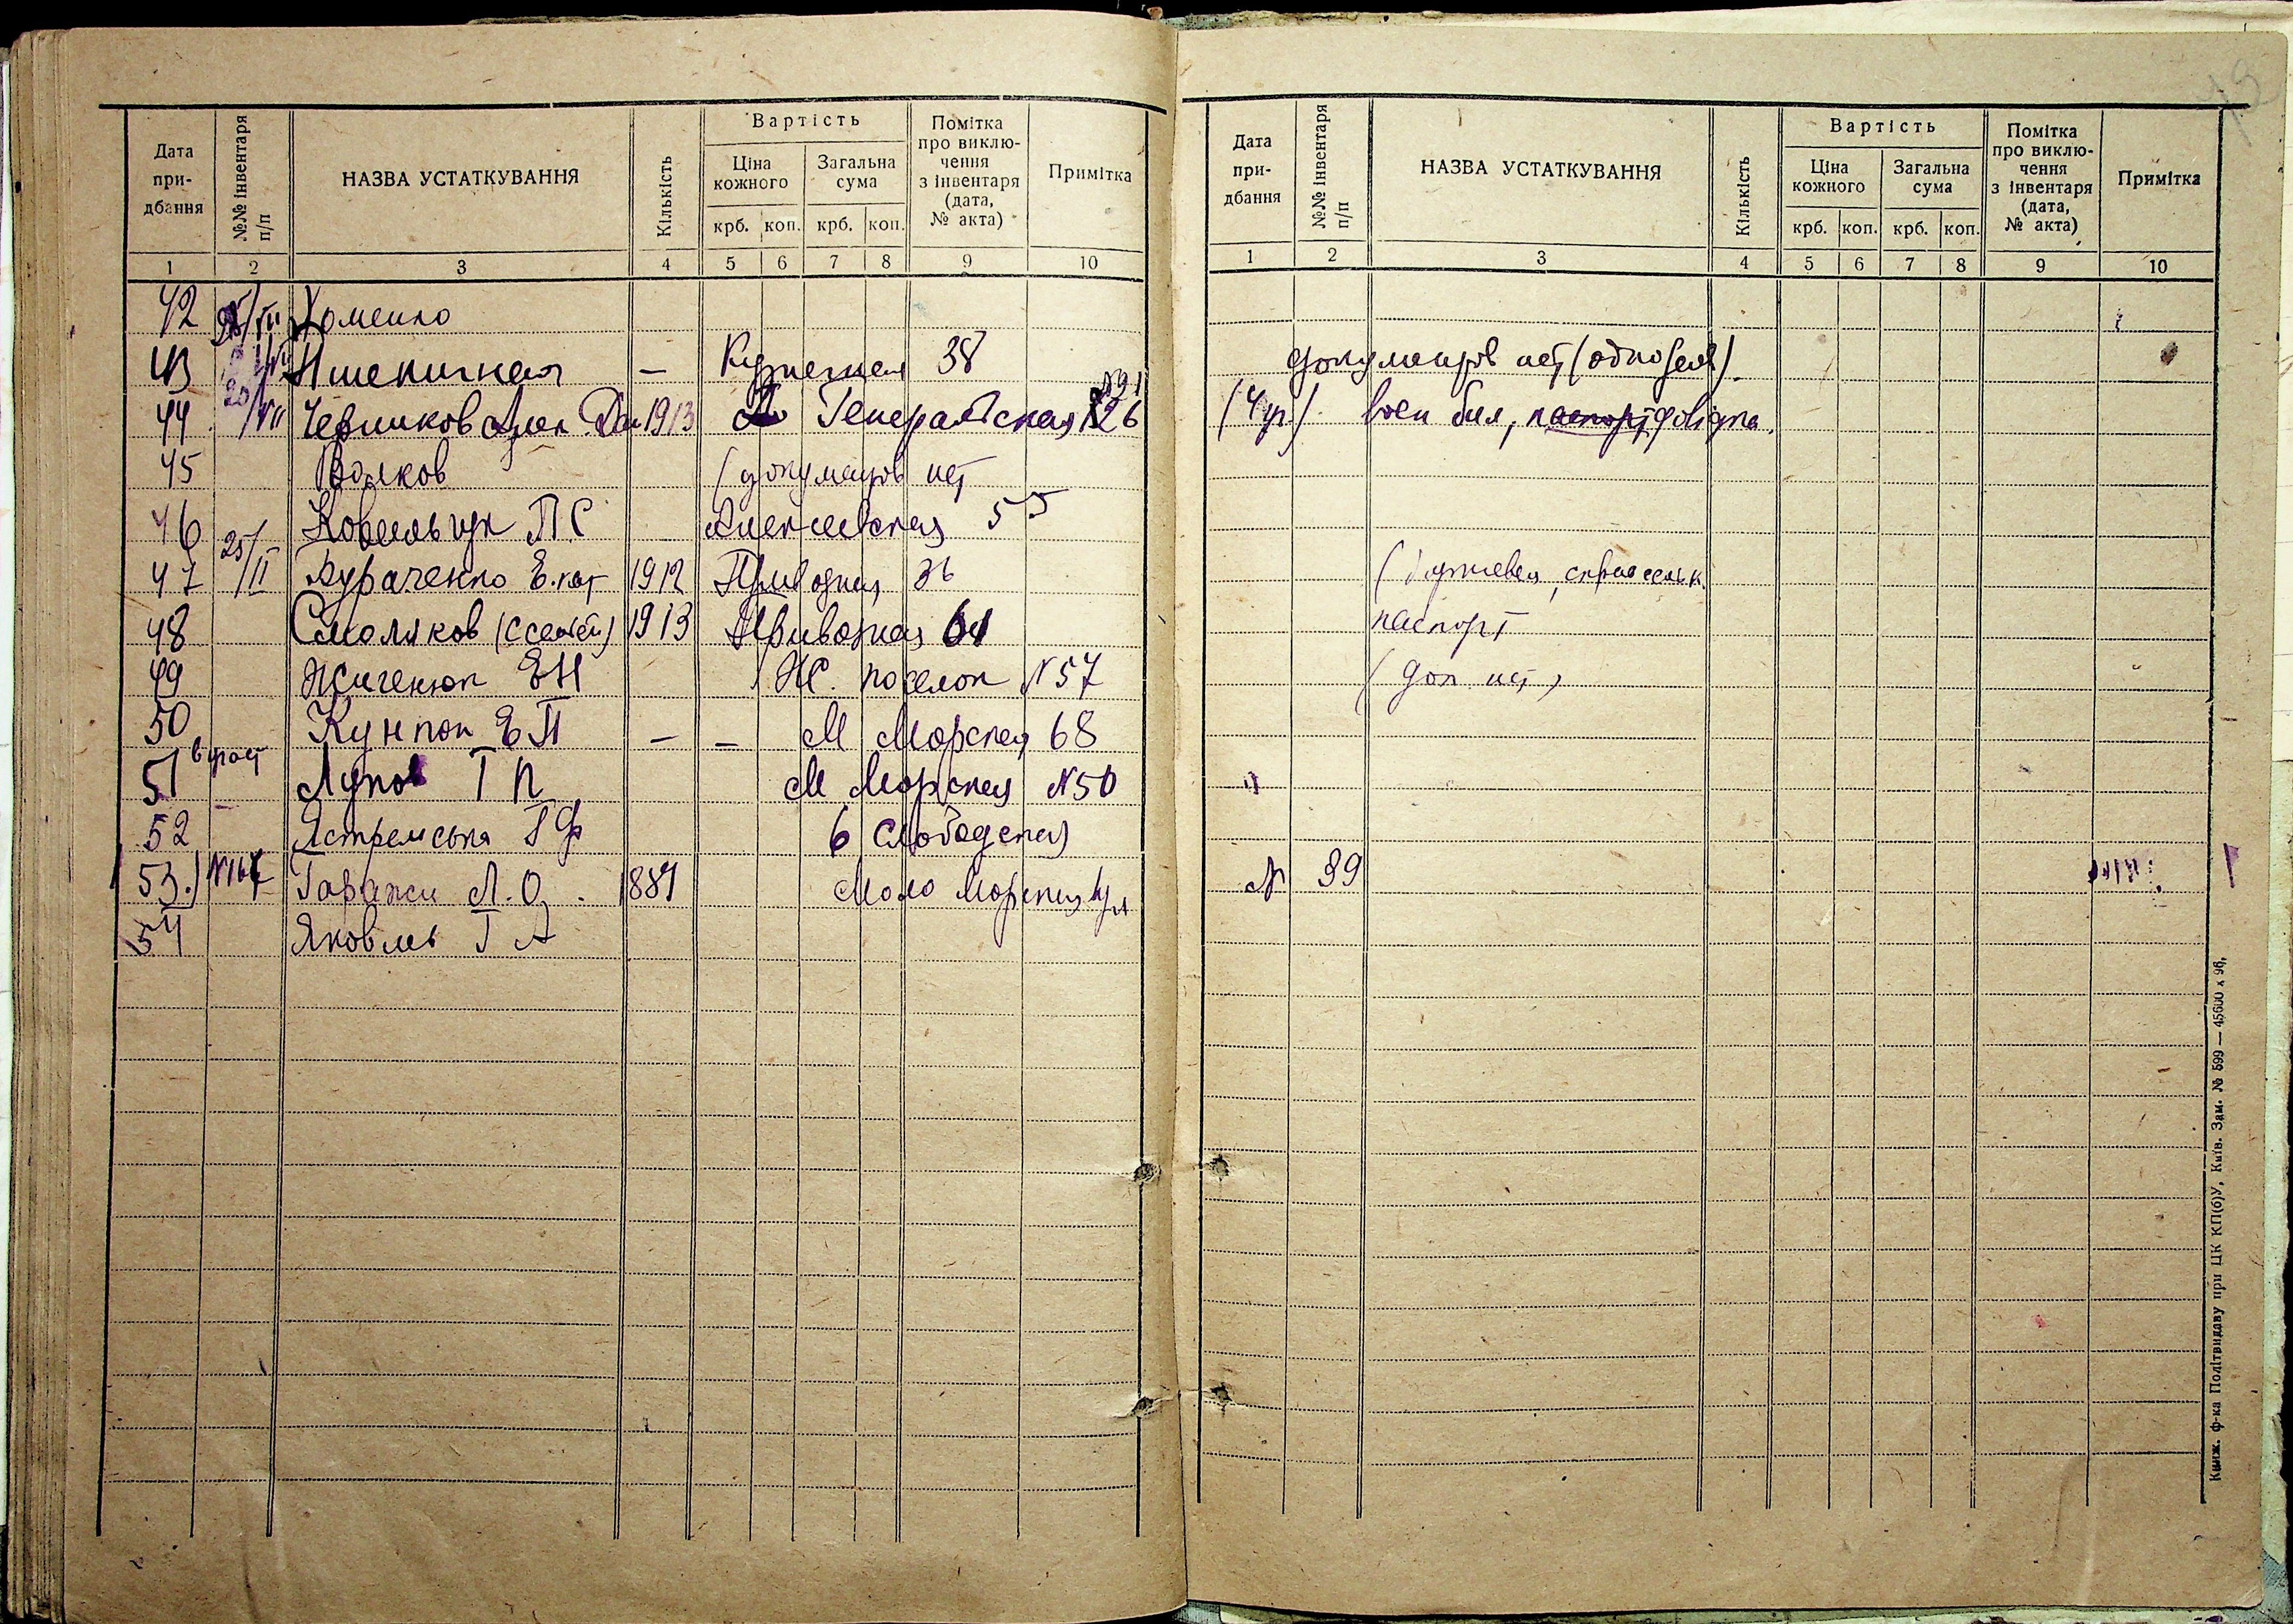 Дата при- дбання №№ інвентаря п/п НАЗВА УСТАТКУВАННЯ Кількість Вартість Ціна кожного крб. коп. Загальна сума крб. коп. Помітка про виклю- чення з інвентаря (дата, № акта) Примітка
1 2 3 4 5 6 7 8 9 10
42 Хоменко
43 Пшеничная — Кузнечная 38
44 20/VII Черников 1913 Генеральская 26
45 Волков (документов нет
46 Ковальчук П С Алексеевская 55
47 25/II Кураченко Е.кат 1912 Приводная 36
48 Смоляков (с семьей) 1913 Приводная 61
49 Жигенюк Е Н Ж. поселок N 57
50 Кунпон Е П — — М Морская 68
51 Лупов Г П М Морская N 50
52 Ястремська Г Ф 6 Слободская
53. N 167 Гаражи Л. О. 1887 Мало Морская ул
54 Яковль Г А
Дата при- дбання №№ інвентаря п/п НАЗВА УСТАТКУВАННЯ Кількість Вартість Ціна кожного крб. коп. Загальна сума крб. коп. Помітка про виклю- чення з інвентаря (дата, № акта) Примітка
1 2 3 4 5 6 7 8 9 10
документов нет
воен бил, паспорт
паспорт
(док нет)
N 39
Книж. ф-ка Політвидаву при ЦК КП(б)У, Київ. Зам. № 599 — 45600 х 96.